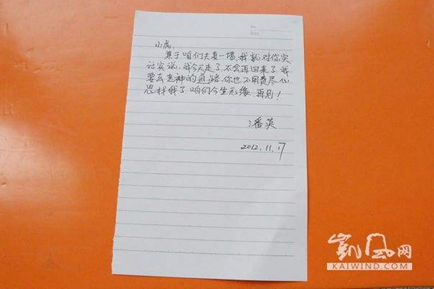 山虎:
基于咱们夫妻一场,我就对你实
话实说,我今天走了,不会再回来了,我
要去走神的道路,你也不用费尽心
思找我了,咱们今生无缘,再见!
潘英
2012.11.17
凯风网
KAIWIND.COM